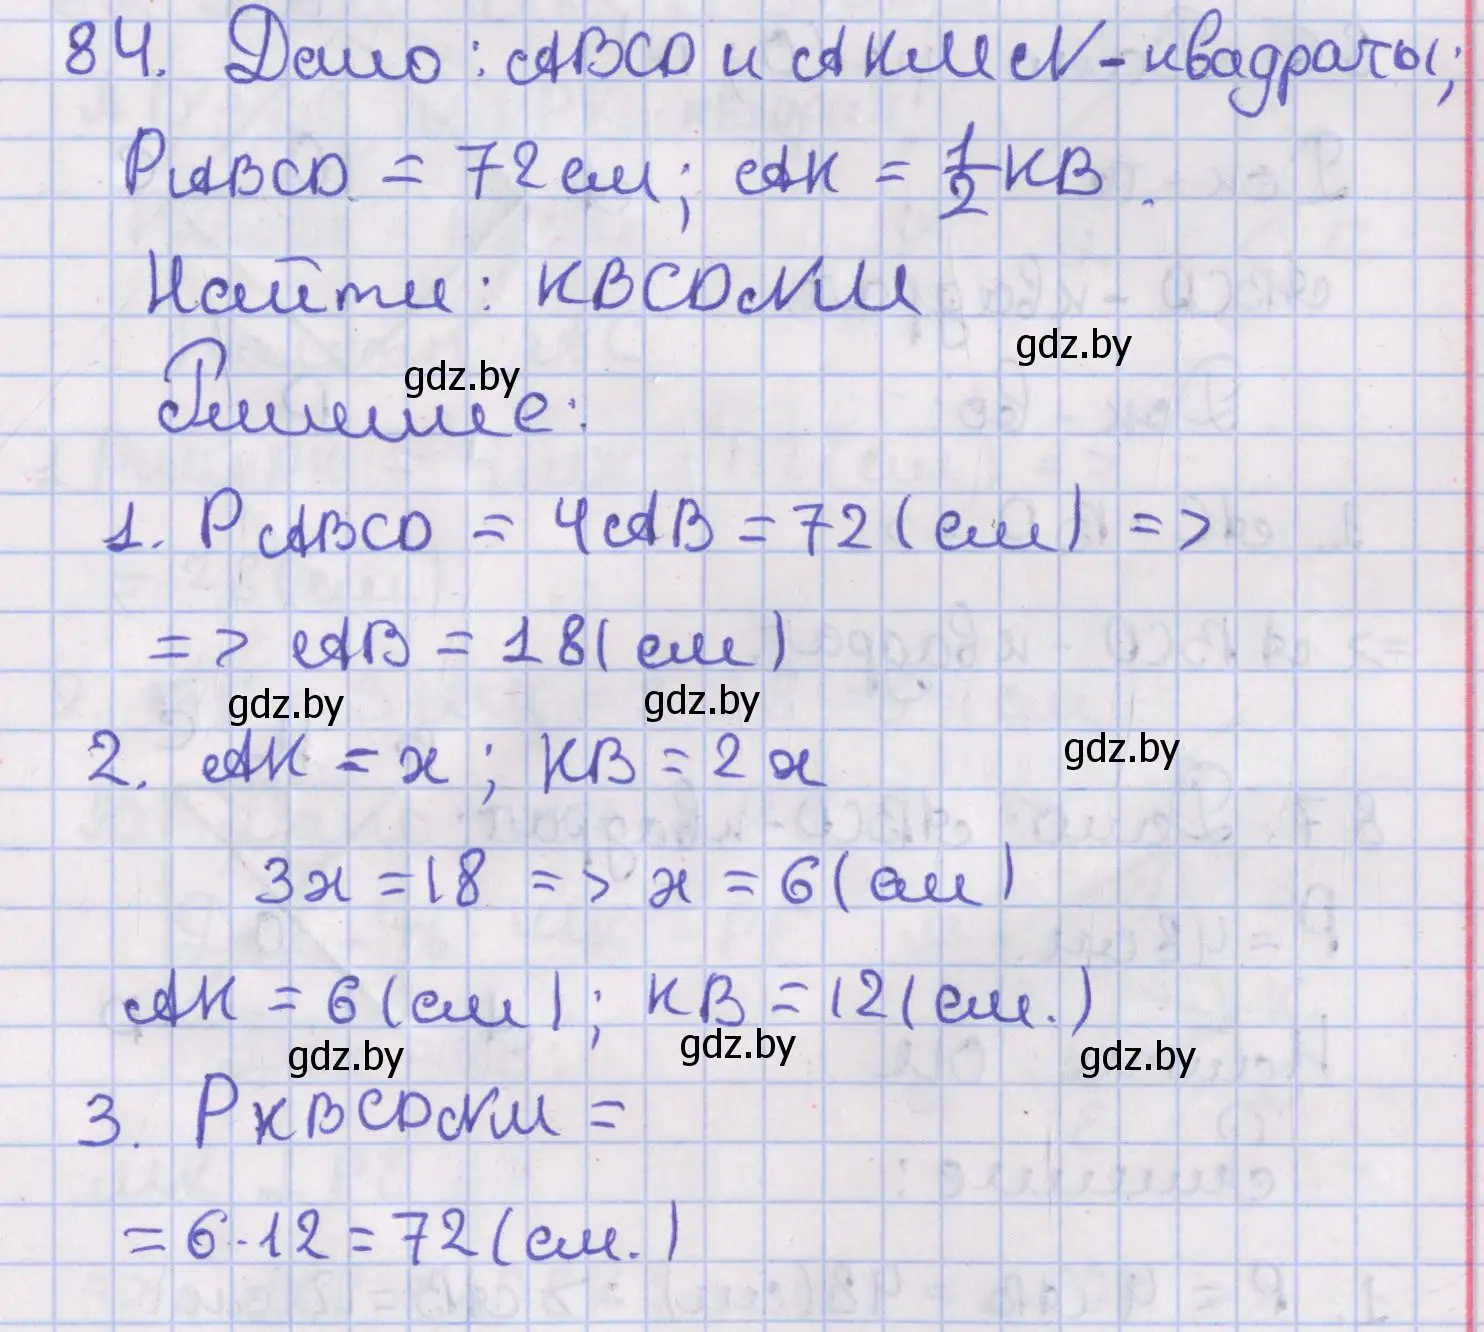 84. Дано: ABCD и AKMN - квадраты;
PABCD = 72 см; AK = 1/2 KB.
Найти: KBCDNM
gdz.by
gdz.by
Решение:
1. PABCD = 4AB = 72 (см) =>
=> AB = 18 (см)
gdz.by gdz.by
2. AK = x; KB = 2x
gdz.by
3x = 18 => x = 6 (см)
AK = 6 (см); KB = 12 (см.)
gdz.by gdz.by gdz.by
3. PKBCDNM =
= 6 · 12 = 72 (см.)